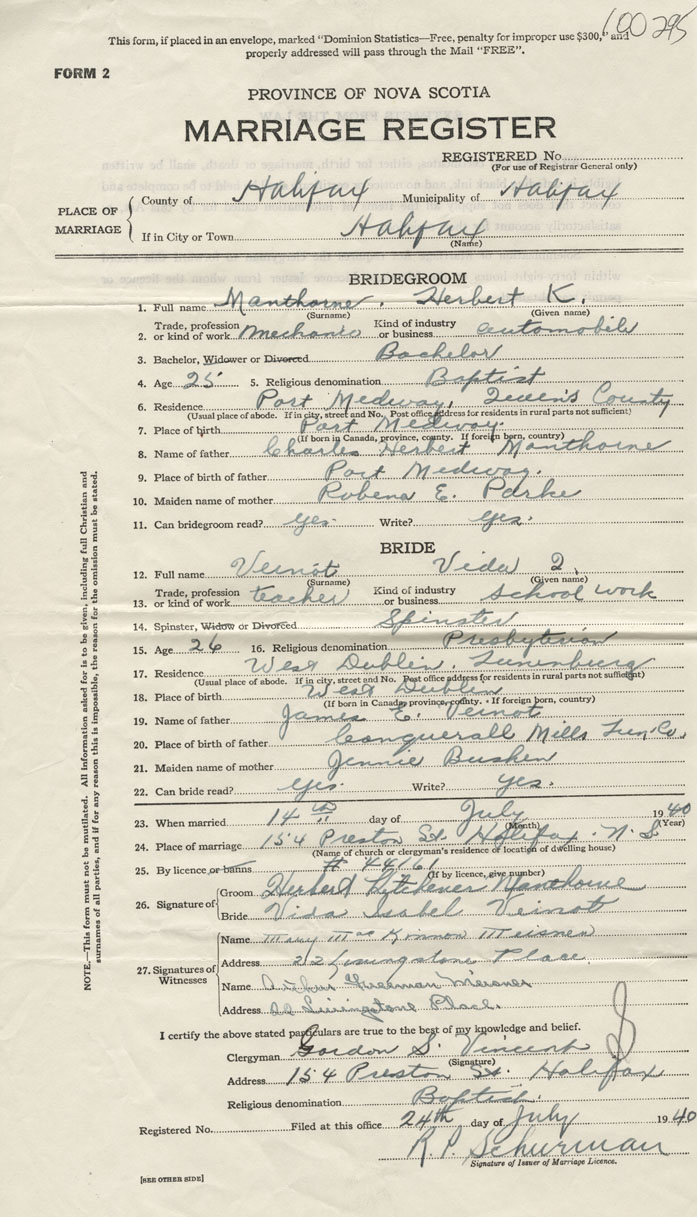 100295
This form, if placed in an envelope, marked "Dominion Statistics—Free, penalty for improper use $300," and
properly addressed will pass through the Mail "FREE".
FORM 2
PROVINCE OF NOVA SCOTIA
MARRIAGE REGISTER
REGISTERED No.
(For use of Registrar General only)
PLACE OF MARRIAGE
County of Halifax Municipality of Halifax
If in City or Town Halifax
(Name)
BRIDEGROOM
1. Full name Manthorne, Herbert K.
(Surname) (Given name)
2. Trade, profession or kind of work mechanic Kind of industry or business automobile
3. Bachelor, Widower or Divorced Bachelor
4. Age 25 5. Religious denomination Baptist
6. Residence Port Medway, Queen's County
(Usual place of abode. If in city, street and No. Post office address for residents in rural parts not sufficient)
7. Place of birth Port Medway.
(If born in Canada, province, county. If foreign born, country)
8. Name of father Charles Herbert Manthorne
9. Place of birth of father Port Medway.
10. Maiden name of mother Robena E. Parke
11. Can bridegroom read? yes. Write? yes.
BRIDE
12. Full name Veinot Vida I.
(Surname) (Given name)
13. Trade, profession or kind of work teacher Kind of industry or business school work
14. Spinster, Widow or Divorced Spinster
15. Age 26 16. Religious denomination Presbyterian
17. Residence West Dublin, Lunenburg
(Usual place of abode. If in city, street and No. Post office address for residents in rural parts not sufficient)
18. Place of birth West Dublin
(If born in Canada, province, county. If foreign born, country)
19. Name of father James E. Veinot
20. Place of birth of father Conquerall Mills Lun. Co.
21. Maiden name of mother Jennie Bushen
22. Can bride read? yes. Write? yes.
23. When married 14th day of July 1940
(Month) (Year)
24. Place of marriage 154 Preston St. Halifax. N. S.
(Name of church or clergyman's residence or location of dwelling house)
25. By licence or banns # 44161
(If by licence, give number)
26. Signature of
Groom Herbert Kitchener Manthorne
Bride Vida Isabel Veinot
27. Signatures of Witnesses
Name Mary MacKinnon Meisner
Address 22 Livingstone Place.
Name Arthur Freeman Meisner
Address 22 Livingstone Place.
I certify the above stated particulars are true to the best of my knowledge and belief.
Clergyman Gordon S. Vincent
(Signature)
Address 154 Preston St. Halifax
Religious denomination Baptist.
Registered No. Filed at this office 24th day of July 1940
R. P. Schurman
Signature of Issuer of Marriage Licence.
[SEE OTHER SIDE]
NOTE.—This form must not be mutilated. All information asked for is to be given, including full Christian and
surnames of all parties, and if for any reason this is impossible, the reason for the omission must be stated.